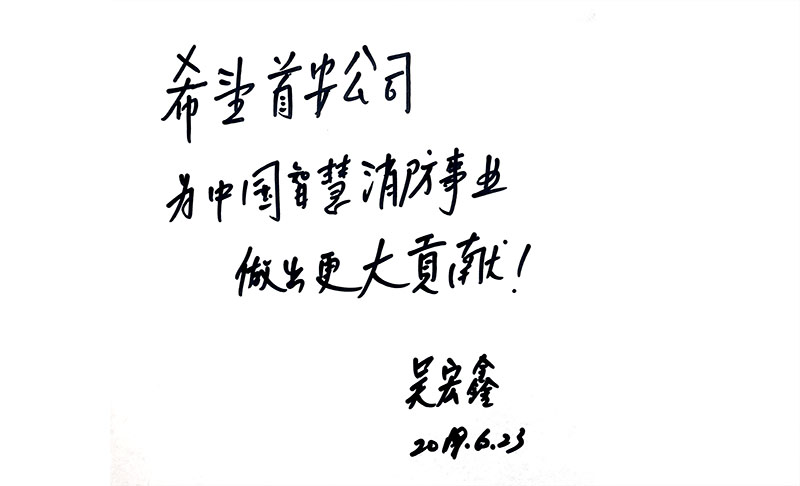 希望首安公司
为中国智慧消防事业
做出更大贡献!
吴宏鑫
2019.6.23